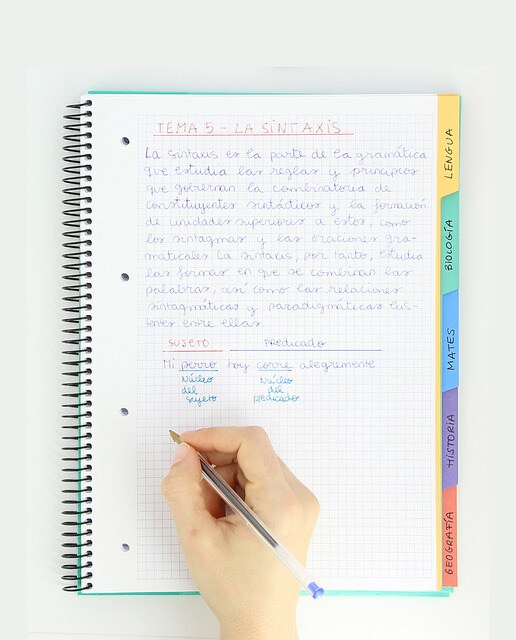 TEMA 5 - LA SINTAXIS
La sintaxis es la parte de la gramática
que estudia las reglas y principios
que gobiernan la combinatoria de
constituyentes sintácticos y la formación
de unidades superiores a estos, como
los sintagmas y las oraciones gra-
maticales. La sintaxis, por tanto, estudia
las formas en que se combinan las
palabras, así como las relaciones
sintagmáticas y paradigmáticas exis-
tentes entre ellas.
SUJETO PREDICADO
Mi perro hoy corre alegremente
Núcleo del sujeto
Núcleo del predicado
LENGUA
BIOLOGÍA
MATES
HISTORIA
GEOGRAFÍA